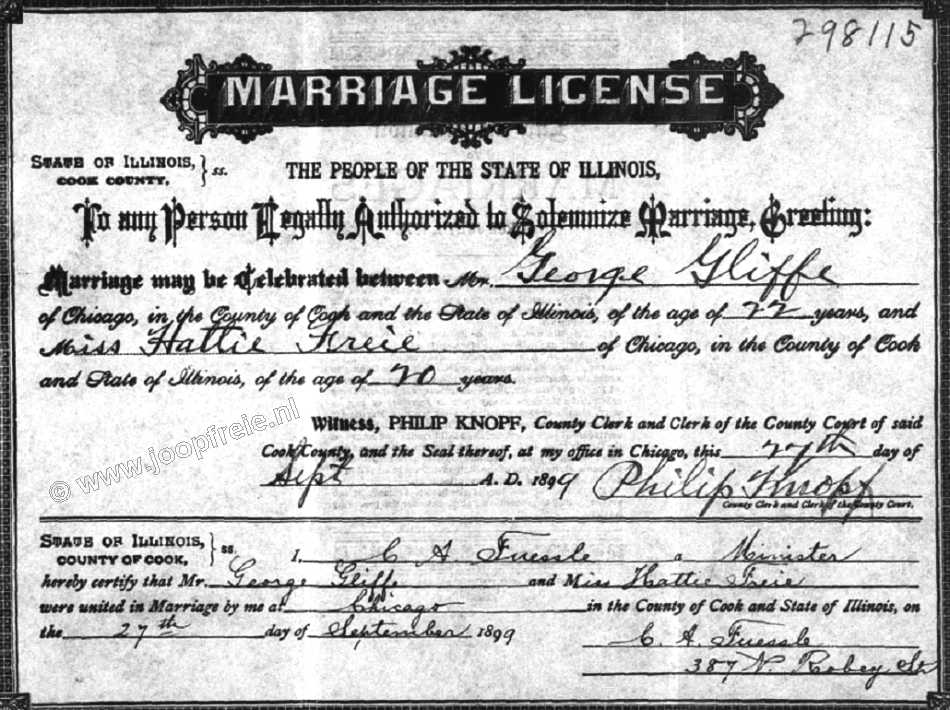 298115
MARRIAGE LICENSE
STATE OF ILLINOIS, COOK COUNTY. } ss. THE PEOPLE OF THE STATE OF ILLINOIS,
To any Person Legally Authorized to Solemnize Marriage, Greeting:
Marriage may be Celebrated between Mr. George Gliffe
of Chicago, in the County of Cook and the State of Illinois, of the age of 22 years, and
Miss Hattie Freie of Chicago, in the County of Cook
and State of Illinois, of the age of 20 years.
Witness, PHILIP KNOPF, County Clerk and Clerk of the County Court of said
Cook County, and the Seal thereof, at my office in Chicago, this 27th day of
Sept A. D. 1899 Philip Knopf
County Clerk and Clerk of the County Court.
© www.joopfreie.nl
STATE OF ILLINOIS, COUNTY OF COOK, } ss. I, C A Fuessle a Minister
hereby certify that Mr. George Gliffe and Miss Hattie Freie
were united in Marriage by me at Chicago in the County of Cook and State of Illinois, on
the 27th day of September 1899
C. A. Fuessle
387 N. Robey Str